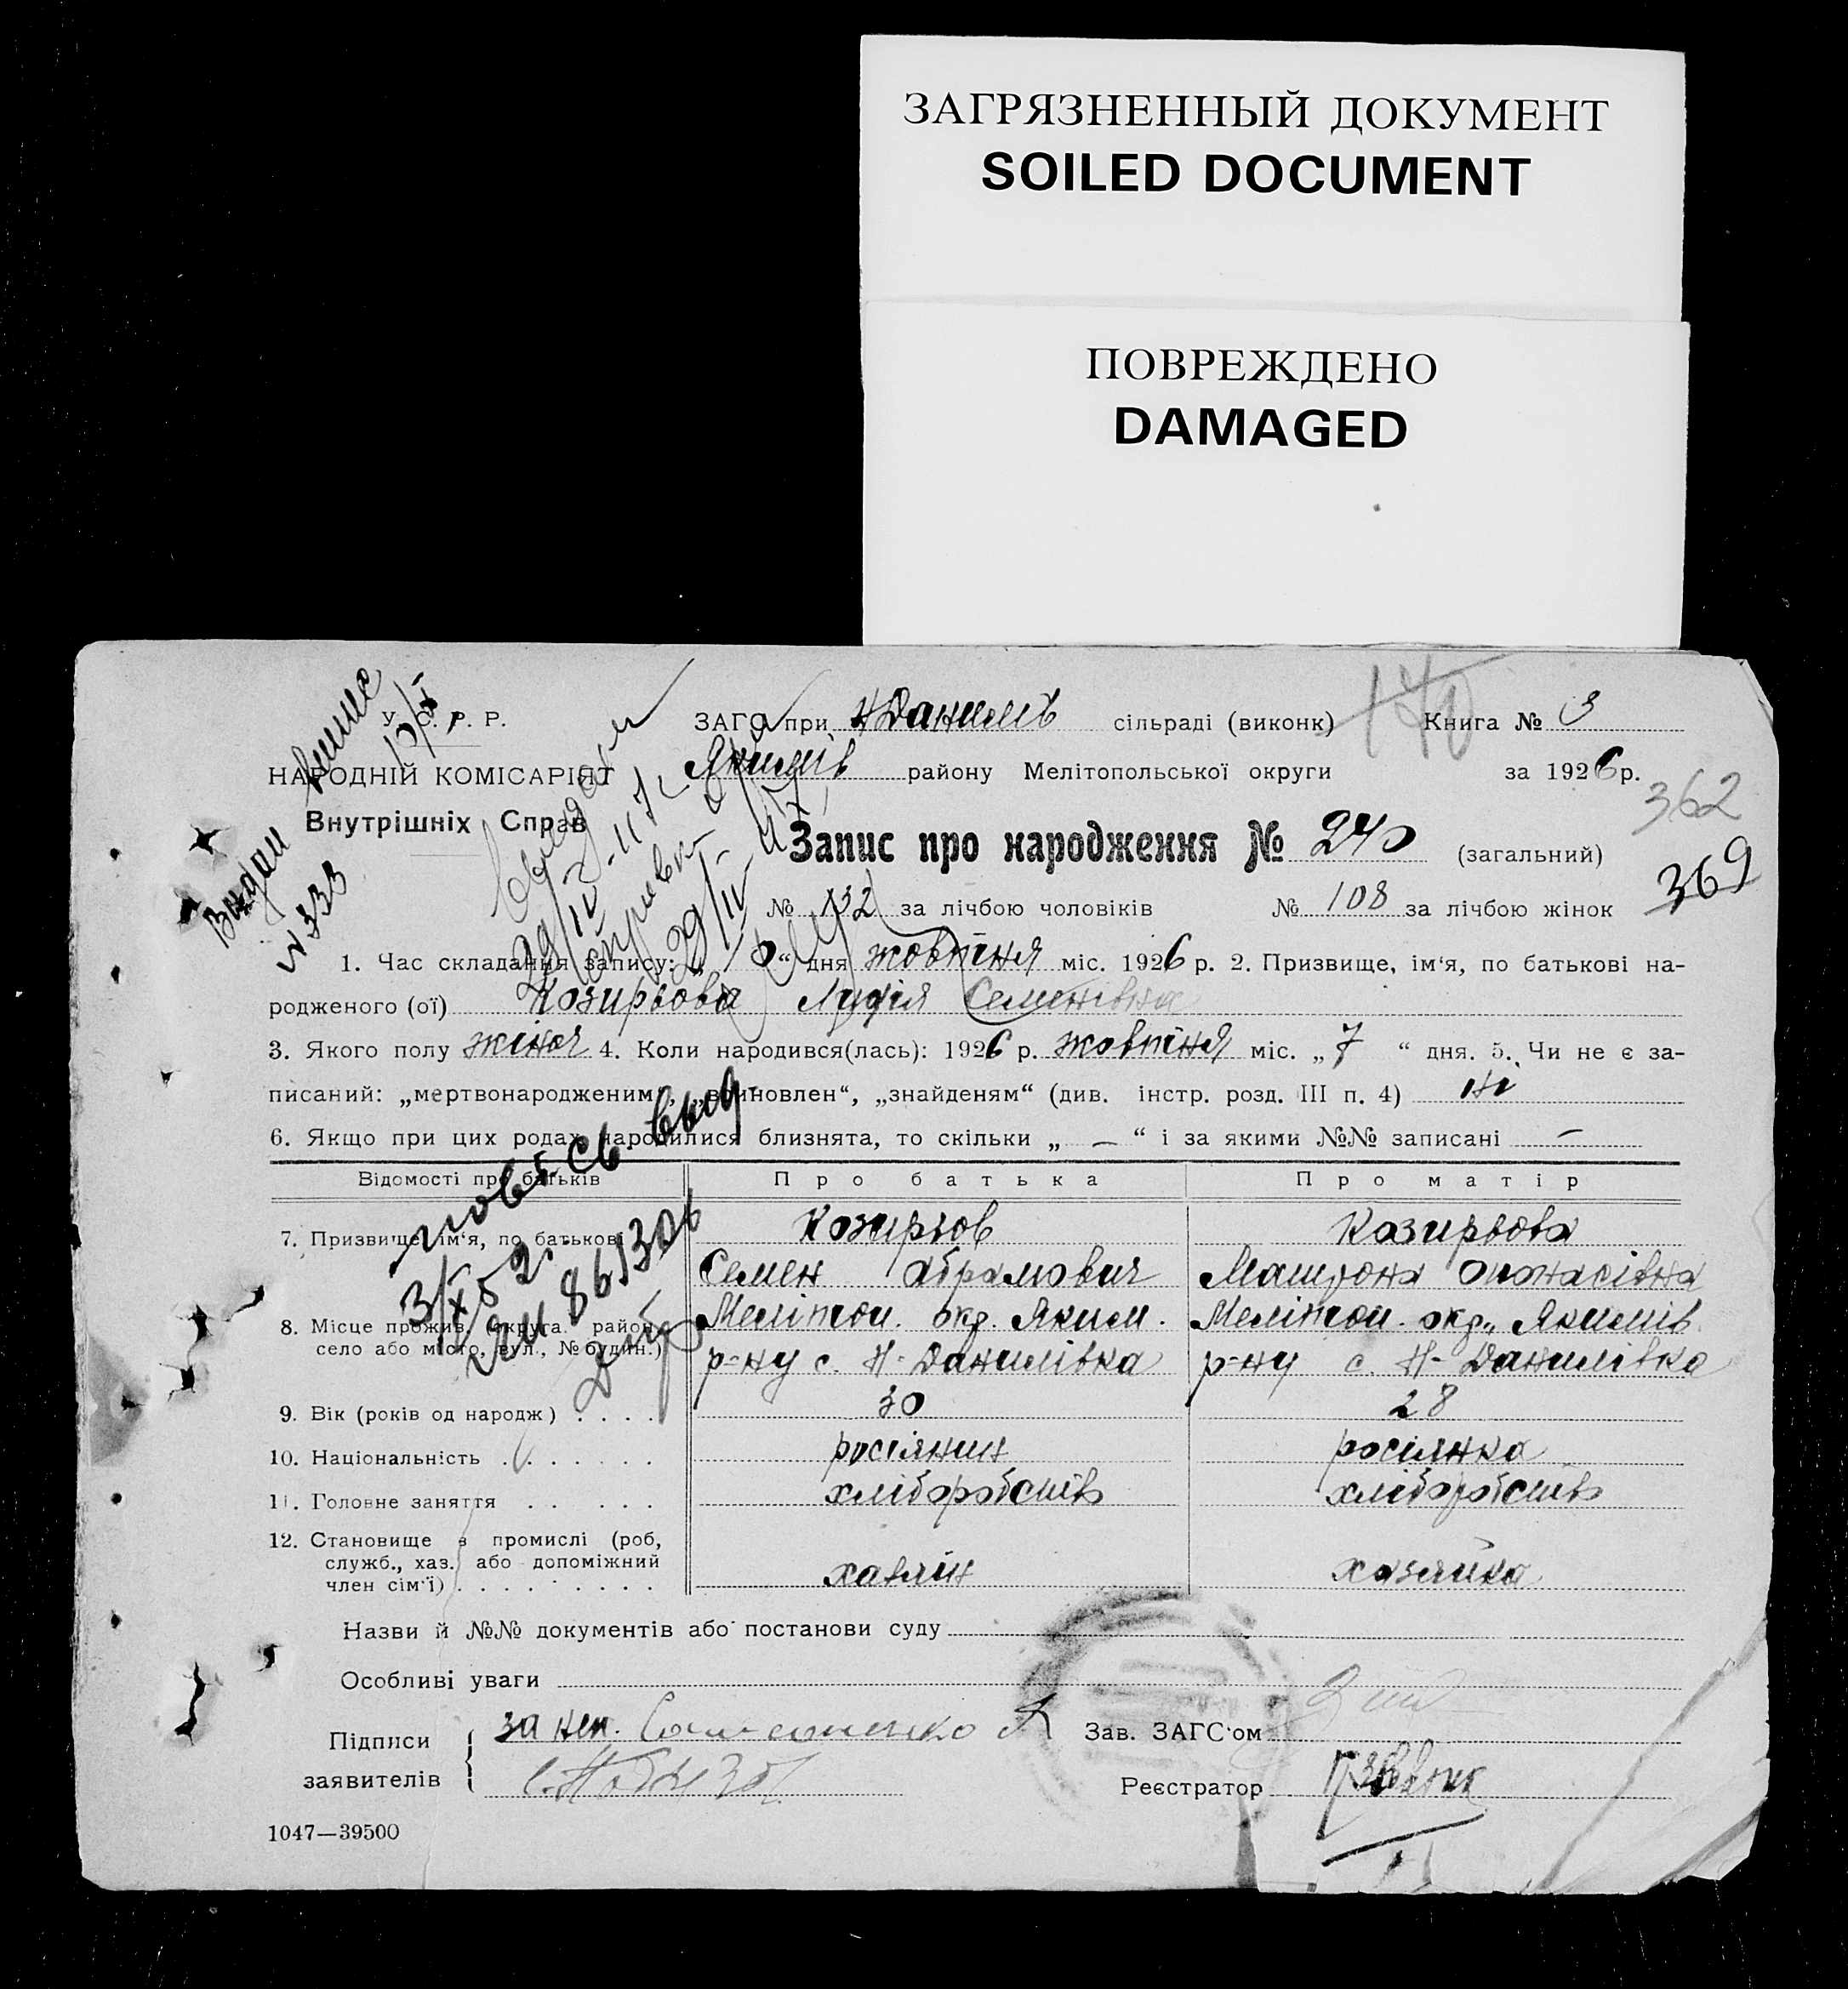 ЗАГРЯЗНЕННЫЙ ДОКУМЕНТ
SOILED DOCUMENT
ПОВРЕЖДЕНО
DAMAGED
У. С. Р. Р.
НАРОДНІЙ КОМІСАРІЯТ
Внутрішніх Справ
ЗАГС при Н Данилів сільраді (виконк) Книга № 3
Якимів району Мелітопольської округи за 1926 р.
140
362
369
Запис про народження № 240 (загальний)
№ 132 за лічбою чоловіків № 108 за лічбою жінок
Видан
№ 333
1. Час складання запису: „10“ дня жовтня міс. 1926 р. 2. Призвище, ім‘я, по батькові на-
родженого (ої) Козирьова Лидія Семенівна
3. Якого полу жіноч 4. Коли народився(лась): 1926 р. жовтня міс. „7“ дня. 5. Чи не є за-
писаний: „мертвонародженим“, „всиновлен“, „знайденям“ (див. інстр. розд. III п. 4) ні
6. Якщо при цих родах народилися близнята, то скільки „ — “ і за якими №№ записані —
Відомості про батьків Про батька Про матір
7. Призвище, ім‘я, по батькові Козирьов Козирьова
Семен Абрамович
8. Місце прожив. (округа, район, Меліпоп. окр. Яким. Меліпоп. окр., Якимів
село або місто, вул., № будин.) р-ну с. Н-Данилівка р-ну с. Н-Данилівка
9. Вік (років од народж) 30 28
10. Національність росіянин росіянка
11. Головне заняття хліборобств хліборобств
12. Становище в промислі (роб,
служб., хаз. або допоміжний
член сім‘ї) хазяїн хазяйка
Назви й №№ документів або постанови суду
Особливі уваги
Підписи за неп. Зав. ЗАГС‘ом
заявителів Реєстратор
1047—39500